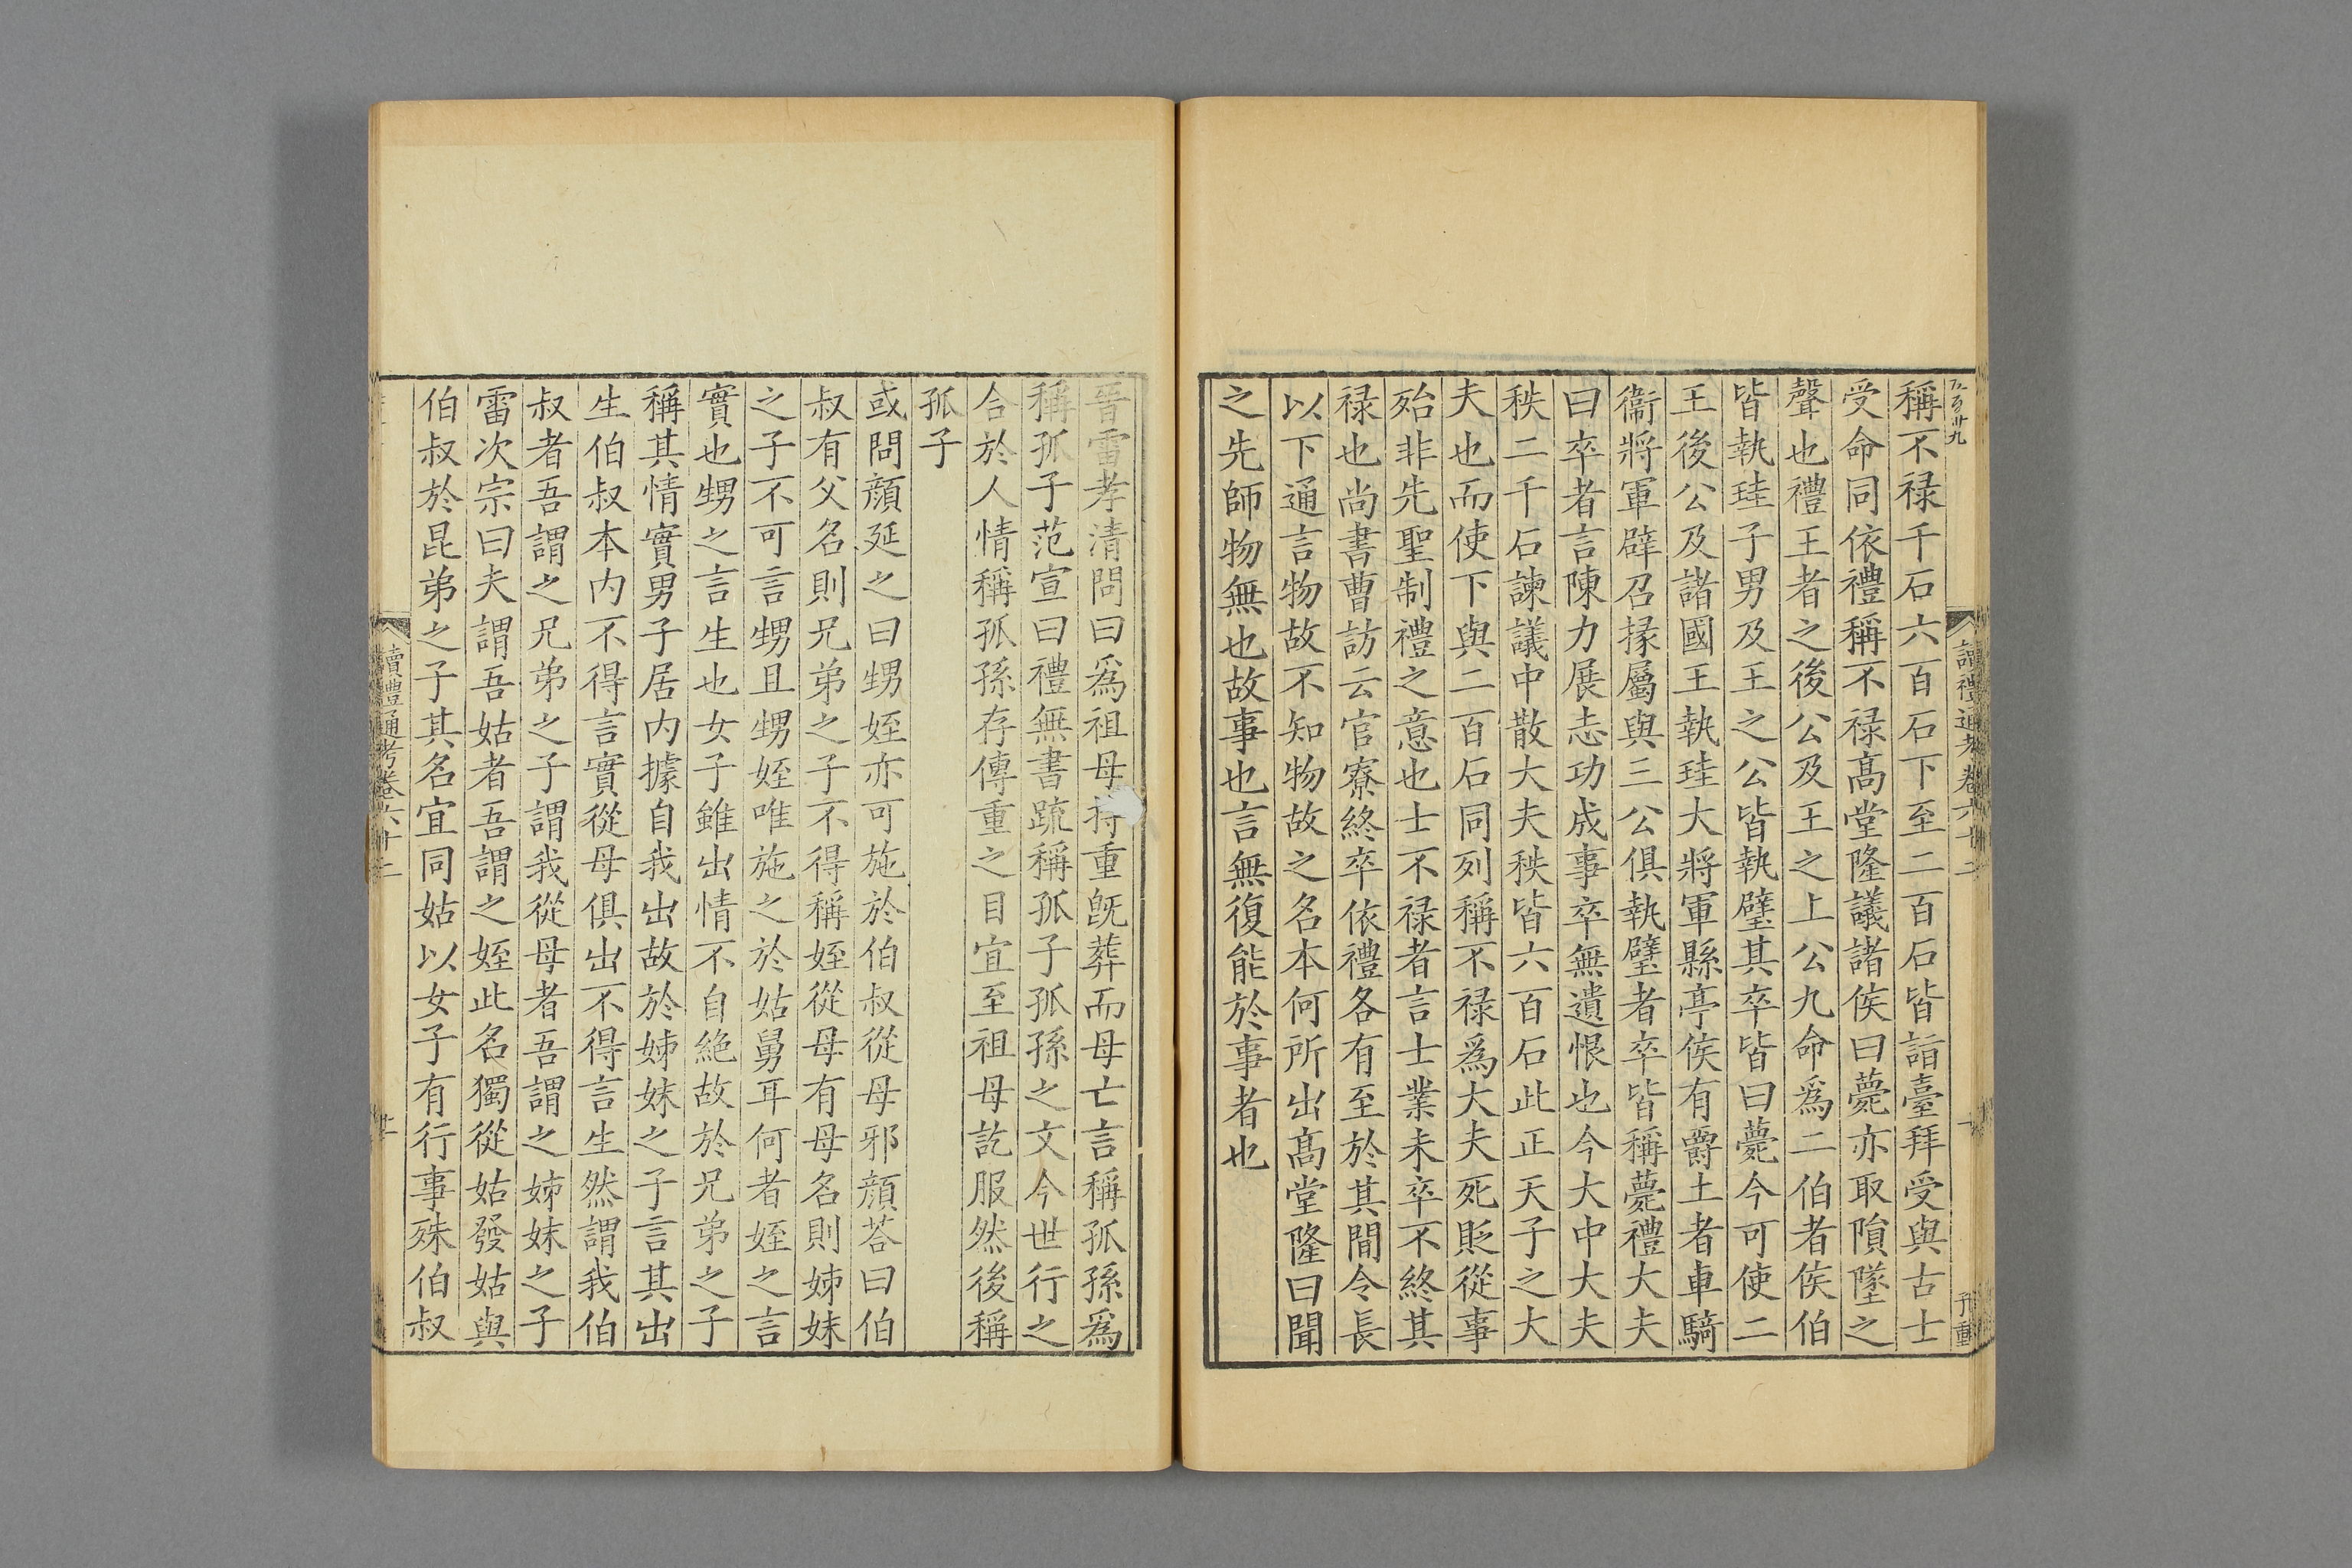 五百卅九
讀禮通考卷六十二
稱不禄千石六百石下至二百石皆詣臺拜受與古士
受命同依禮稱不禄高堂隆議諸侯曰薨亦取隕墜之
聲也禮王者之後公及王之上公九命爲二伯者侯伯
皆執珪子男及王之公皆執璧其卒皆曰薨今可使二
王後公及諸國王執珪大將軍縣亭侯有爵土者車騎
衞將軍辟召掾屬與三公俱執璧者卒皆稱薨禮大夫
曰卒者言陳力展志功成事卒無遺恨也今大中大夫
秩二千石諫議中散大夫秩皆六百石此正天子之大
夫也而使下與二百石同列稱不禄爲大夫死貶從事
殆非先聖制禮之意也士不禄者言士業未卒不終其
禄也尚書曹訪云官寮終卒依禮各有至於其間令長
以下通言物故不知物故之名本何所出高堂隆曰聞
之先師物無也故事也言無復能於事者也
晉雷孝清問曰爲祖母持重旣葬而母亡言稱孤孫爲
稱孤子范宣曰禮無書疏稱孤子孤孫之文今世行之
合於人情稱孤孫存傳重之目宜至祖母訖服然後稱
孤子
或問顔延之曰甥姪亦可施於伯叔從母邪顔荅曰伯
叔有父名則兄弟之子不得稱姪從母有母名則姊妹
之子不可言甥且甥姪唯施之於姑舅耳何者姪之言
實也甥之言生也女子雖出情不自絶故於兄弟之子
稱其情實男子居内據自我出故於姊妹之子言其出
生伯叔本内不得言實從母俱出不得言生然謂我伯
叔者吾謂之兄弟之子謂我從母者吾謂之姊妹之子
雷次宗曰夫謂吾姑者吾謂之姪此名獨從姑發姑與
伯叔於昆弟之子其名宜同姑以女子有行事殊伯叔
讀禮通考卷六十二